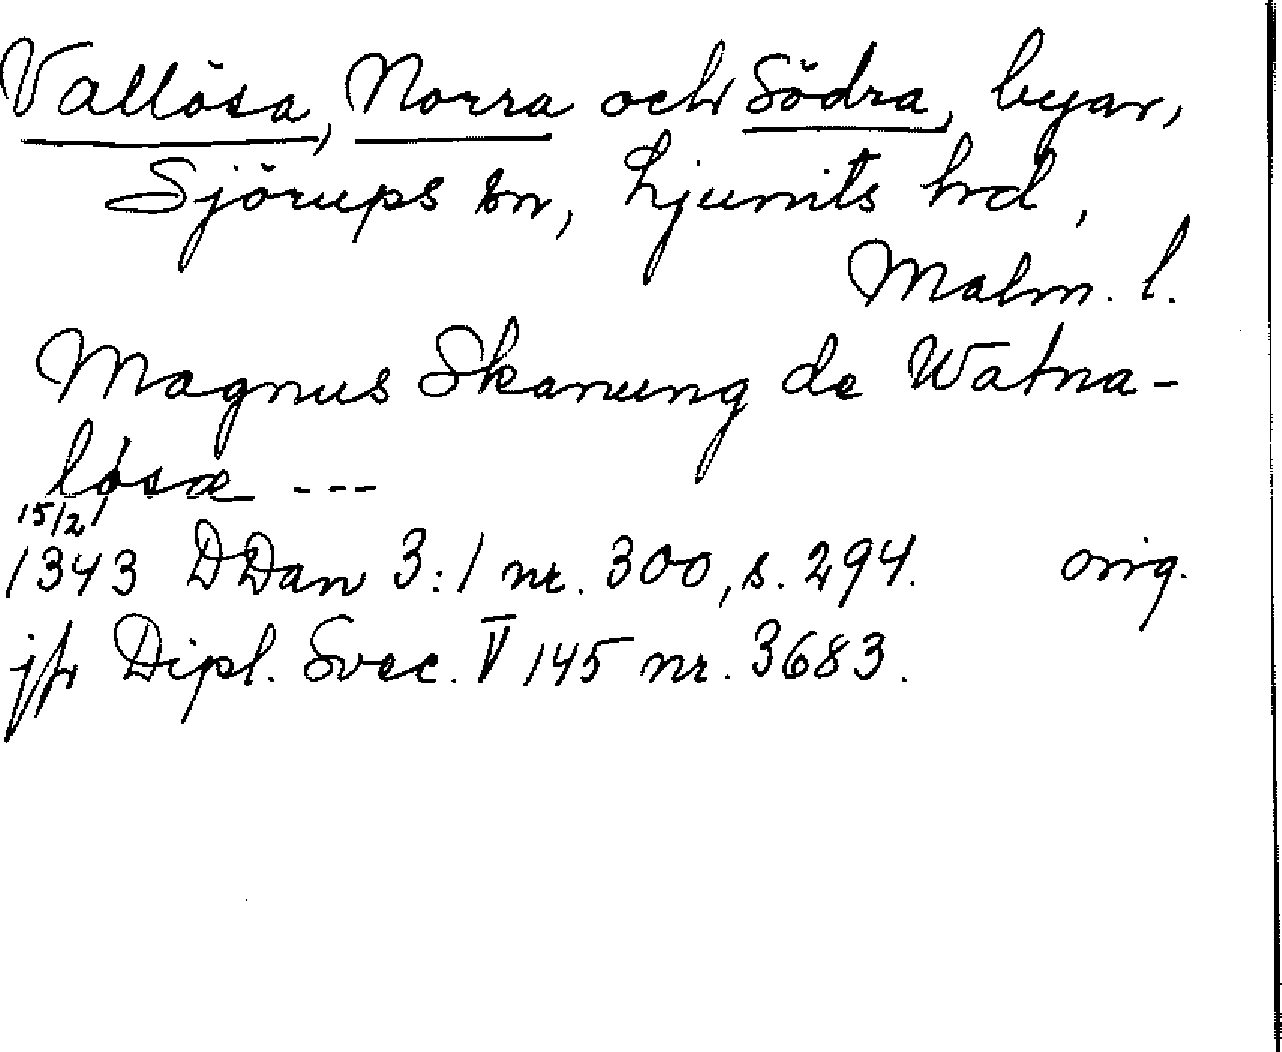 Vallösa, Norra och Södra, byar,
Sjörups sn, Ljunits hd,
Malm. l.
Magnus Skanung de Watna-
løsæ ---
15/2
1343 DDan 3:1 nr. 300, s. 294. orig.
jfr Dipl. Svec. V 145 nr. 3683.